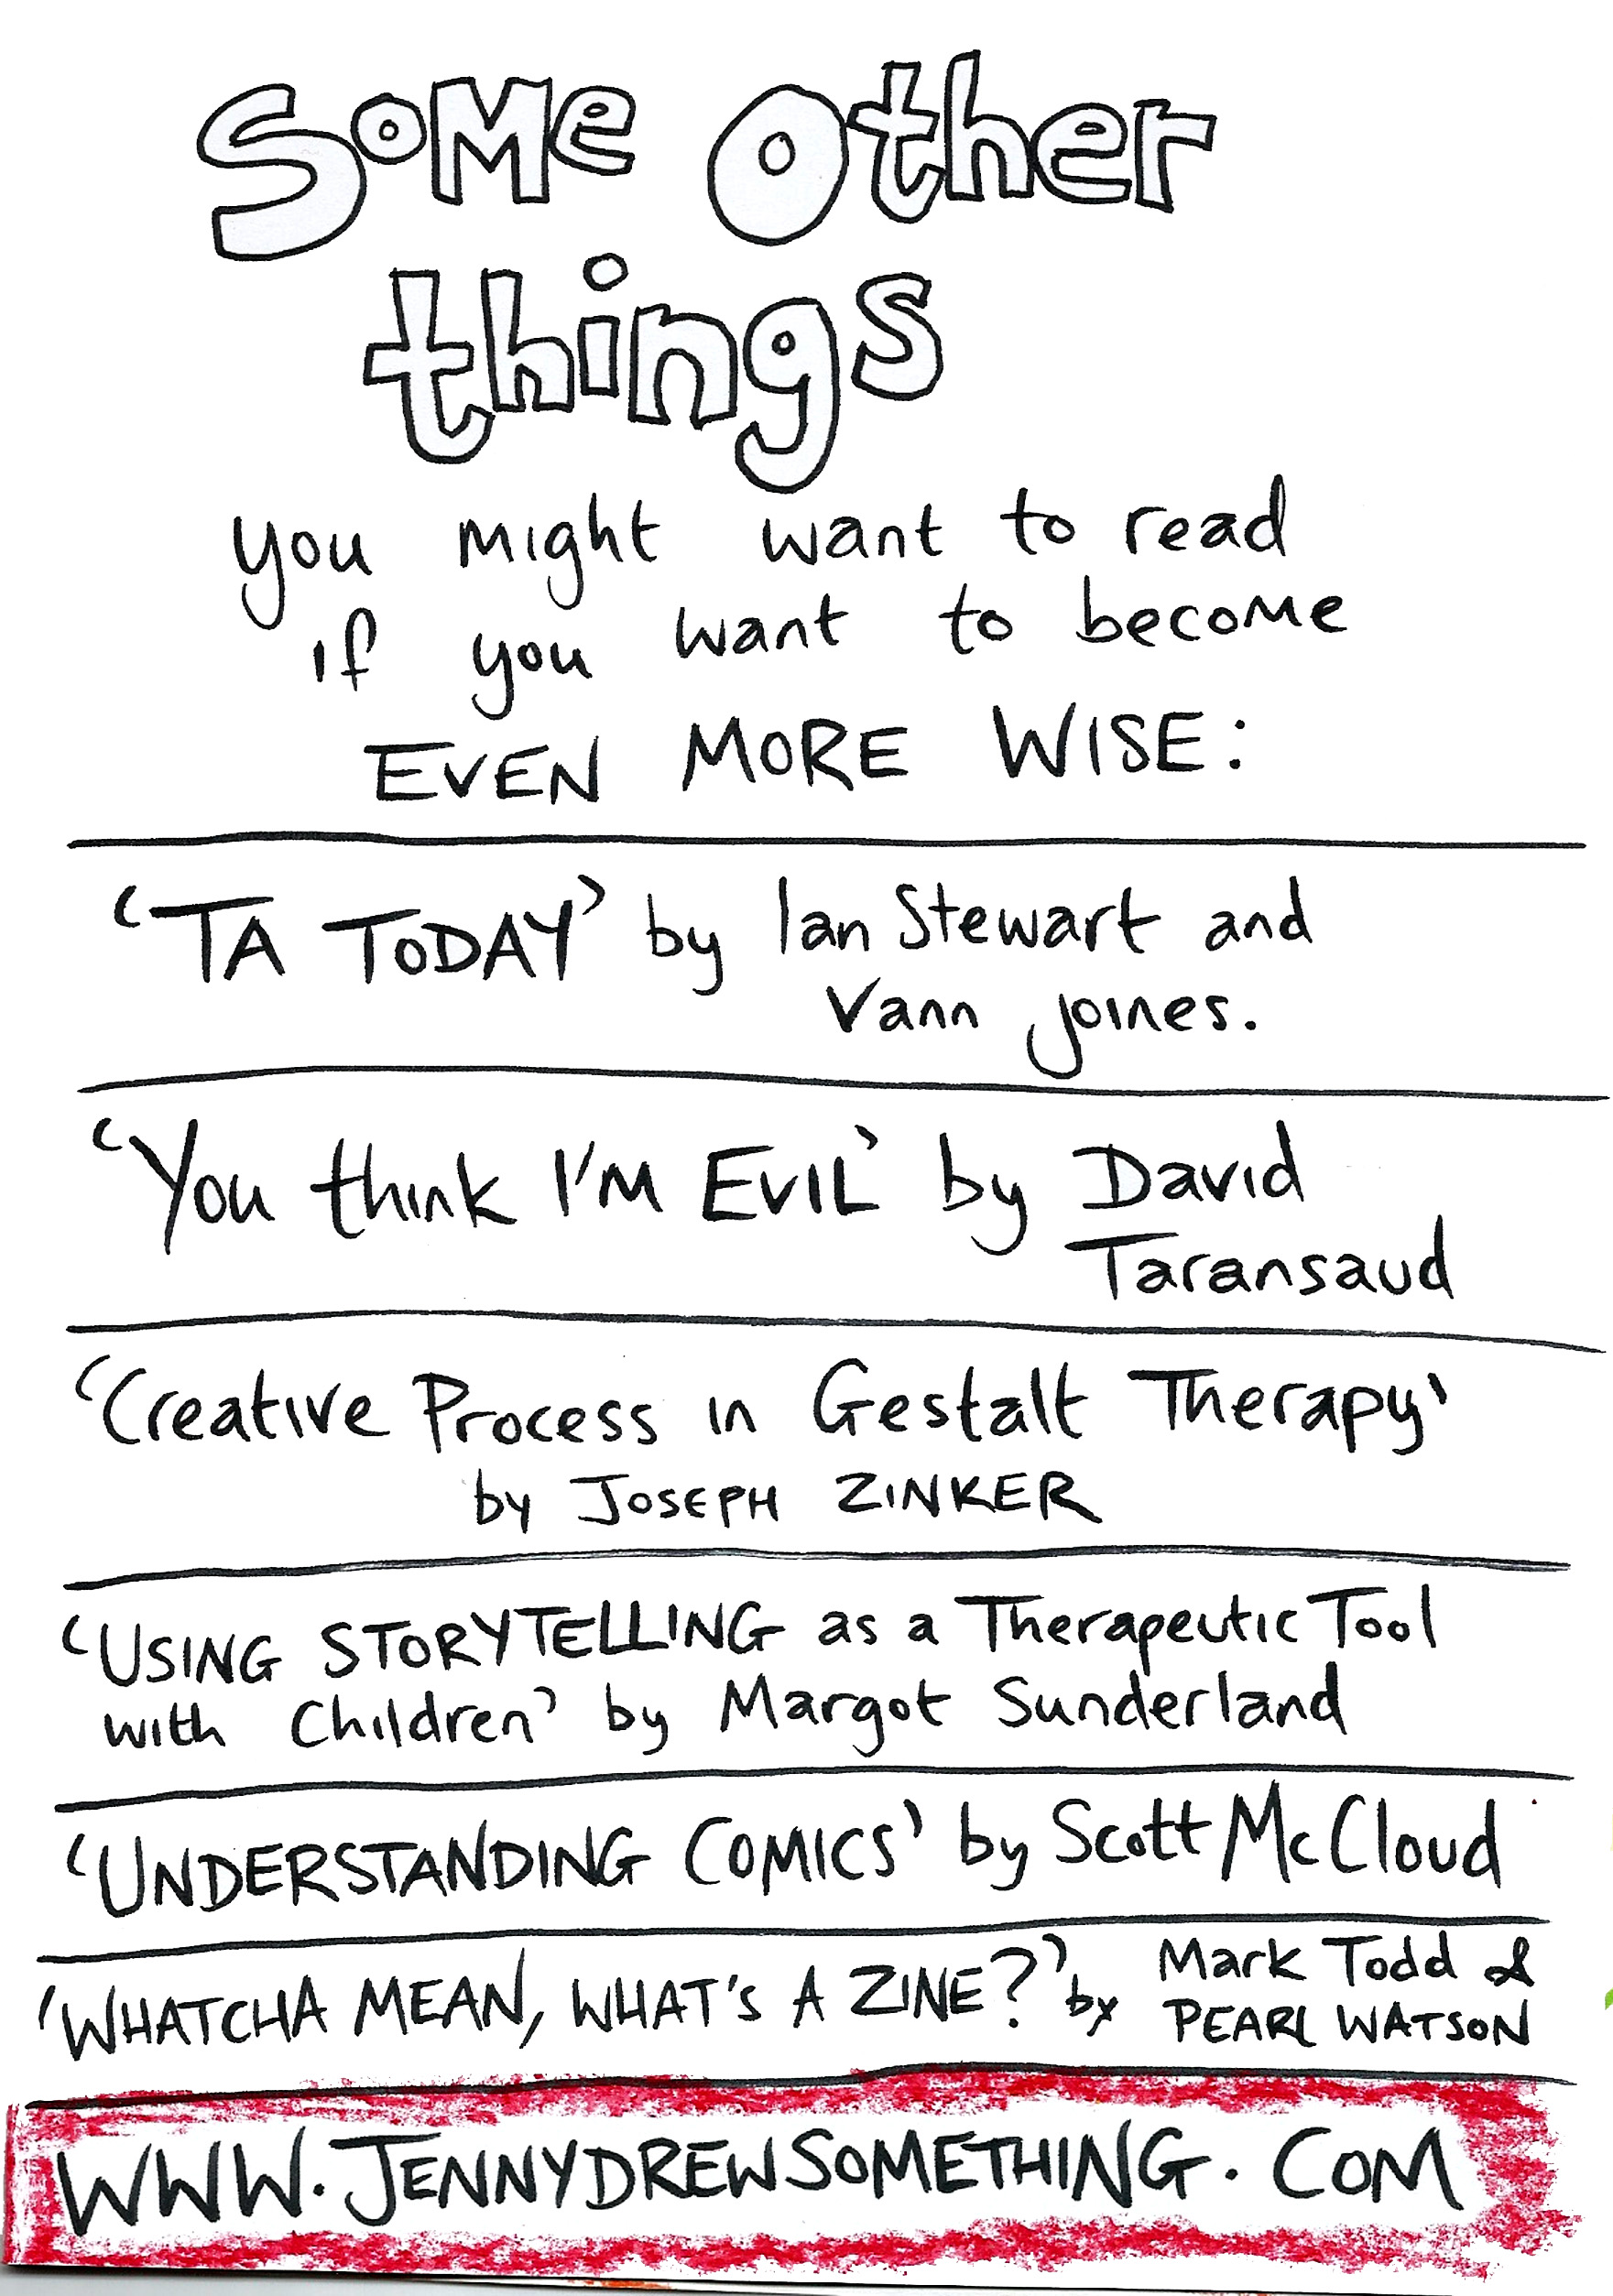 Some Other
things
you might want to read
if you want to become
EVEN MORE WISE:
'TA TODAY' by Ian Stewart and
Vann Joines.
'You think I'M EVIL' by David
Taransaud
'Creative Process in Gestalt Therapy'
by JOSEPH ZINKER
'USING STORYTELLING as a Therapeutic Tool
with Children' by Margot Sunderland
'UNDERSTANDING COMICS' by Scott McCloud
'WHATCHA MEAN, WHAT'S A ZINE?' by Mark Todd &
PEARL WATSON
WWW.JENNYDREWSOMETHING.COM